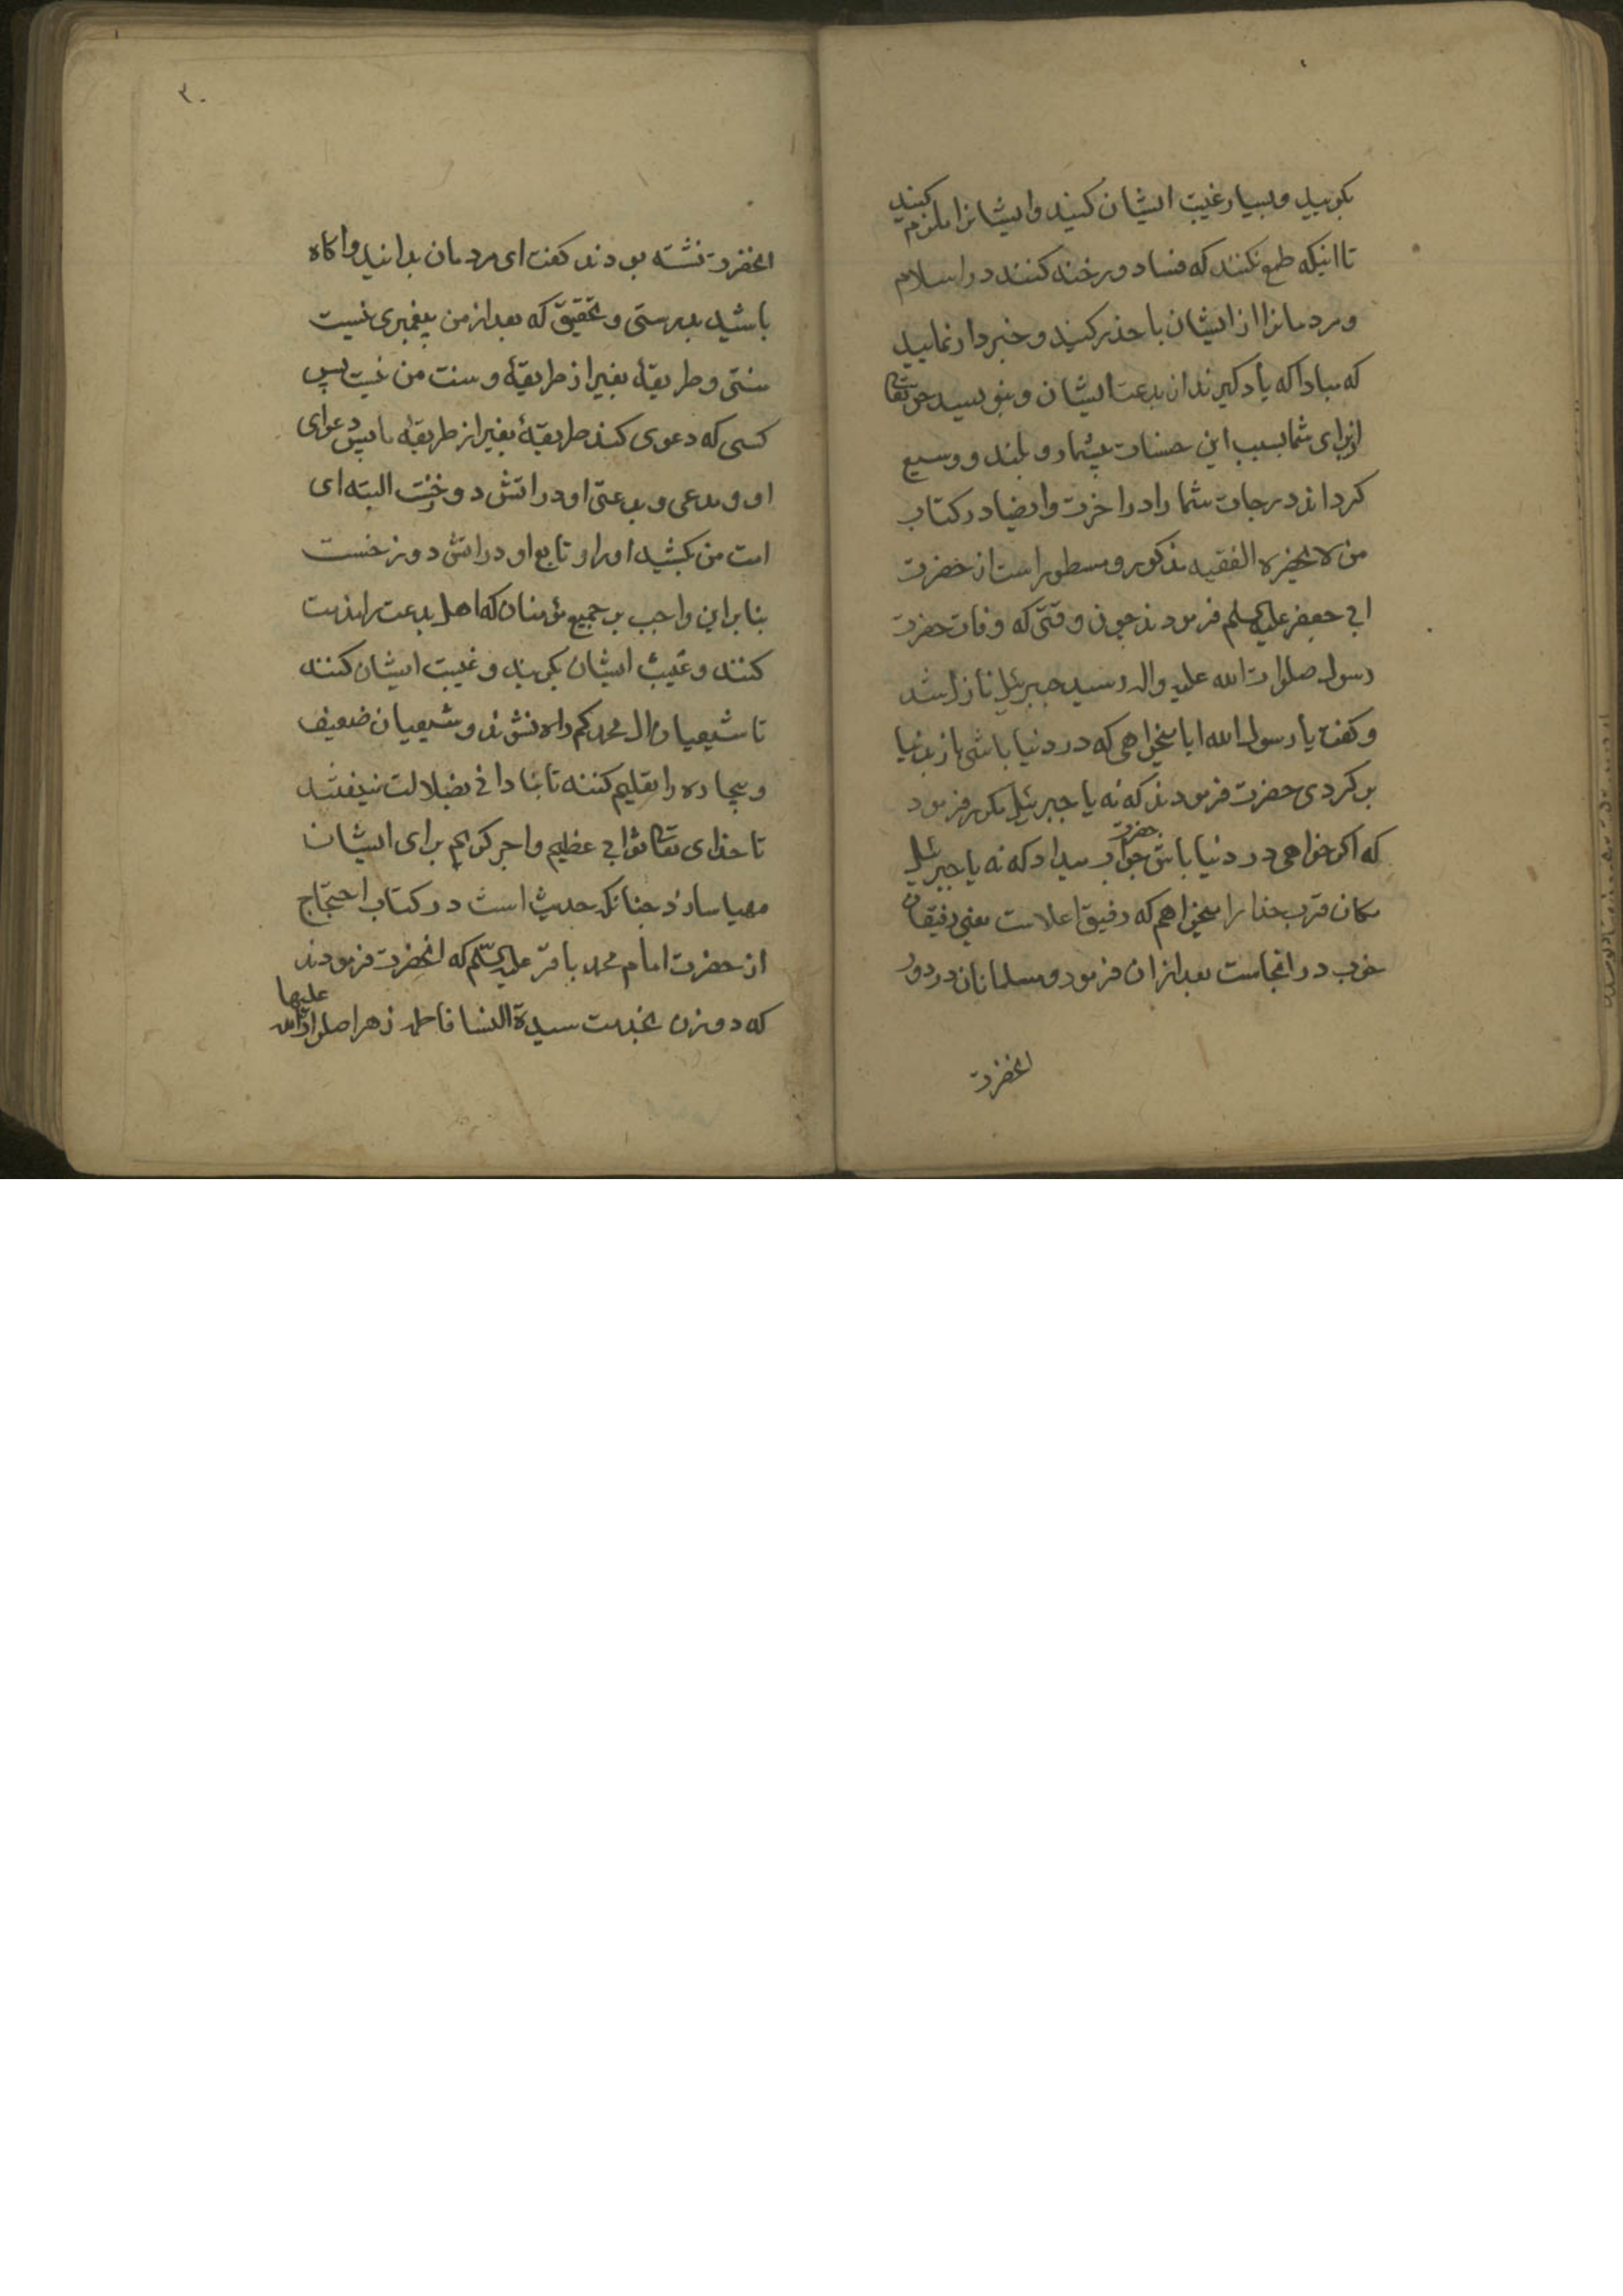 بکویید و بسیار غیبت ایشان کنید و ایشانرا ملزم کنید
تا اینکه طمع نکنند که فساد و رخنه کنند در اسلام
و مردمانرا از ایشان با حذر کنید و خبردار نمایید
که مبادا که یاد کیرند از بدعت ایشان و بنویسد حق تعالی
از برای شما بسبب این حسنات بیشمار و بلند و وسیع
کرداند درجات شما را در اخرت و ایضا در کتاب
من لا یحضره الفقیه مذکور و مسطور است از حضرت
ابی جعفر علیه السلم فرمودند چون وقتی که وفات حضرت
رسول صلوات الله علیه واله رسید جبرئیل نازل شد
و کفت یا رسول الله ایا میخواهی که در دنیا باشی باز بدنیا
بر کردی حضرت فرمودند که نه یا جبرئیل مکرر فرمود
که اکر خواهی در دنیا باش حضرت جواب میداد که نه یا جبرئیل
مکان قرب خدا را میخواهم که رفیق اعلاست یعنی رفیقان
خوب در انجاست بعد از ان فرمود و مسلمانان در دور
انحضرت
۳۰
انحضرت نشسته بودند کفت ای مردمان بدانید و اکاه
باشید بدرستی و تحقیق که بعد از من پیغمبری نیست
سنتی و طریقهٔ بغیر از طریقهٔ و سنت من نیست پس
کسی که دعوی کند طریقهٔ بغیر از طریقهٔ ما پس دعوای
او و مدعی و بدعتی او در اتش دوزخست البته ای
امت من بکشید او را و تابع او در اتش دوزخست
بنابراین واجب بر جمیع مؤمنان که اهل بدعت را مذمت
کنند و عیب ایشان بکویند و غیبت ایشان کنند
تا شیعیان ال محمد کم راه نشوند و شیعیان ضعیف
و بیچاره را تعلیم کنند تا بنادانی بضلالت نیفتند
تا خدای تعالی ثوابی عظیم و اجر کریم برای ایشان
مهیا سازد چنانکه حدیث است در کتاب احتجاج
از حضرت امام محمد باقر علیه السلم که انحضرت فرمودند
که دو زن بخدمت سیدة النسا فاطمه زهرا صلوات الله علیها